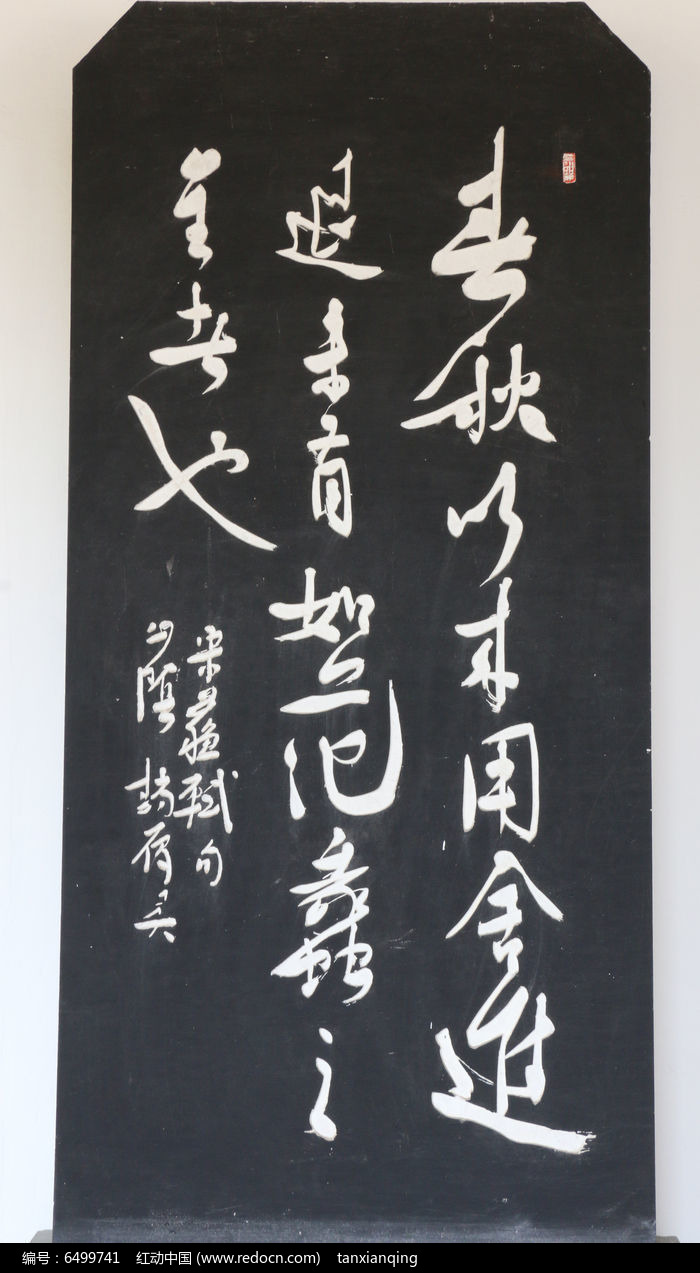 春秋以来用舍進
退未有如范蠡之
全者也
宋蘇軾句
山陰
编号：6499741 红动中国 (www.redocn.com) tanxianqing